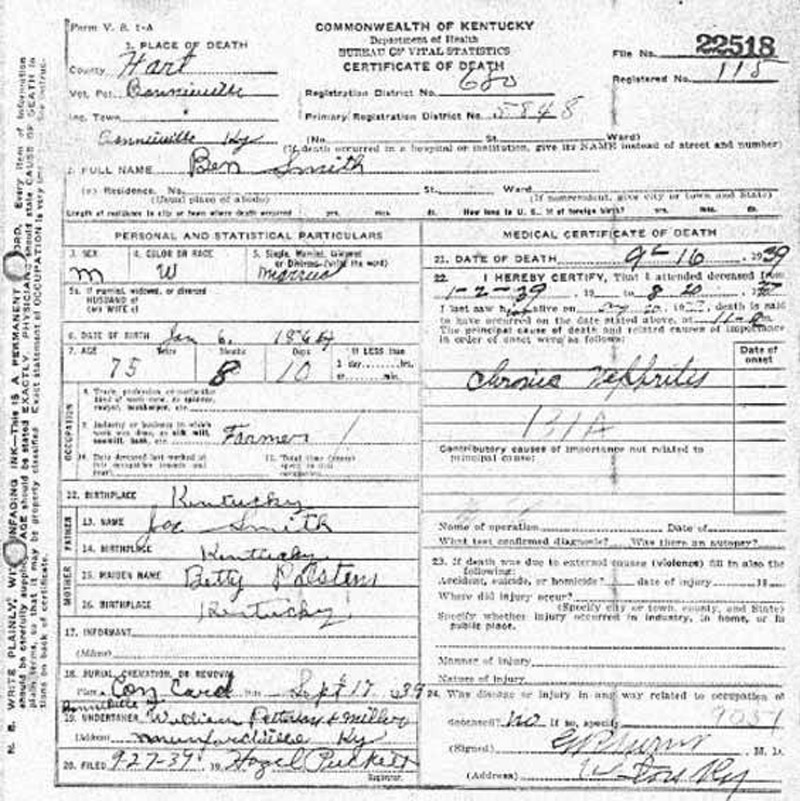 Form V. S. 1-A
COMMONWEALTH OF KENTUCKY
Department of Health
BUREAU OF VITAL STATISTICS
CERTIFICATE OF DEATH
File No. 22518
Registered No. 115
1. PLACE OF DEATH
County Hart
Vot. Pct. Bonnieville
Inc. Town
Bonnieville Ky
Registration District No. 680
Primary Registration District No. 5848
(No. St. Ward)
(If death occurred in a hospital or institution, give its NAME instead of street and number)
2. FULL NAME Ben Smith
(a) Residence. No. St. Ward
(Usual place of abode) (If nonresident, give city or town and State)
Length of residence in city or town where death occurred yrs. mos. ds. How long in U. S., if of foreign birth? yrs. mos. ds.
PERSONAL AND STATISTICAL PARTICULARS
3. SEX 4. COLOR OR RACE 5. Single, Married, Widowed
or Divorced (write the word)
M W Married
5a. If married, widowed, or divorced
HUSBAND of
(or) WIFE of
6. DATE OF BIRTH Jan 6,
7. AGE Years Months Days If LESS than
1 day, hrs.
75 8 10 or min.
OCCUPATION
8. Trade, profession or particular
kind of work done, as
sawyer, bookkeeper, etc.
9. Industry or business in which
work was done, as silk mill,
sawmill, bank, etc. Farmer
10. Date deceased last worked at
this occupation (month and
year)
11. Total time (years)
spent in this
occupation
12. BIRTHPLACE Kentucky
FATHER
13. NAME Joe Smith
14. BIRTHPLACE Kentucky
MOTHER
15. MAIDEN NAME Betty
16. BIRTHPLACE Kentucky
17. INFORMANT
(Address)
18. BURIAL, CREMATION, OR REMOVAL
Place Date Sept 17, 1939
Bonnieville
19. UNDERTAKER William
Address Munfordville Ky
20. FILED 9-27-39 19 Hazel Puckett
Registrar.
MEDICAL CERTIFICATE OF DEATH
21. DATE OF DEATH 9 16, 1939
22. I HEREBY CERTIFY, That I attended deceased from
1-2-39, 19 to 8 20
I last saw h alive on death is said
to have occurred on the date stated above, at
The principal cause of death and related causes of importance
in order of onset were as follows:
Date of
onset
Chronic Nephritis
131A
Contributory causes of importance not related to
principal cause:
Name of operation Date of
What test confirmed diagnosis? Was there an autopsy?
23. If death was due to external causes (violence) fill in also the
following:
Accident, suicide, or homicide? date of injury 19
Where did injury occur?
(Specify city or town, county, and State)
Specify whether injury occurred in industry, in home, or in
public place.
Manner of injury
Nature of injury
24. Was disease or injury in any way related to occupation of
deceased? No If so, specify
(Signed) M. D.
(Address) Ky